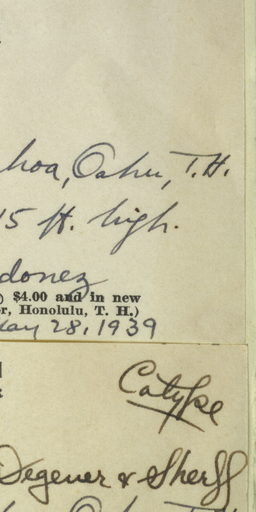 hoa, Oahu, T.H.
15 ft. high.
donez
) $4.00 and in new
r, Honolulu, T. H.)
May 28, 1939
Cotype
Degener & Sherff